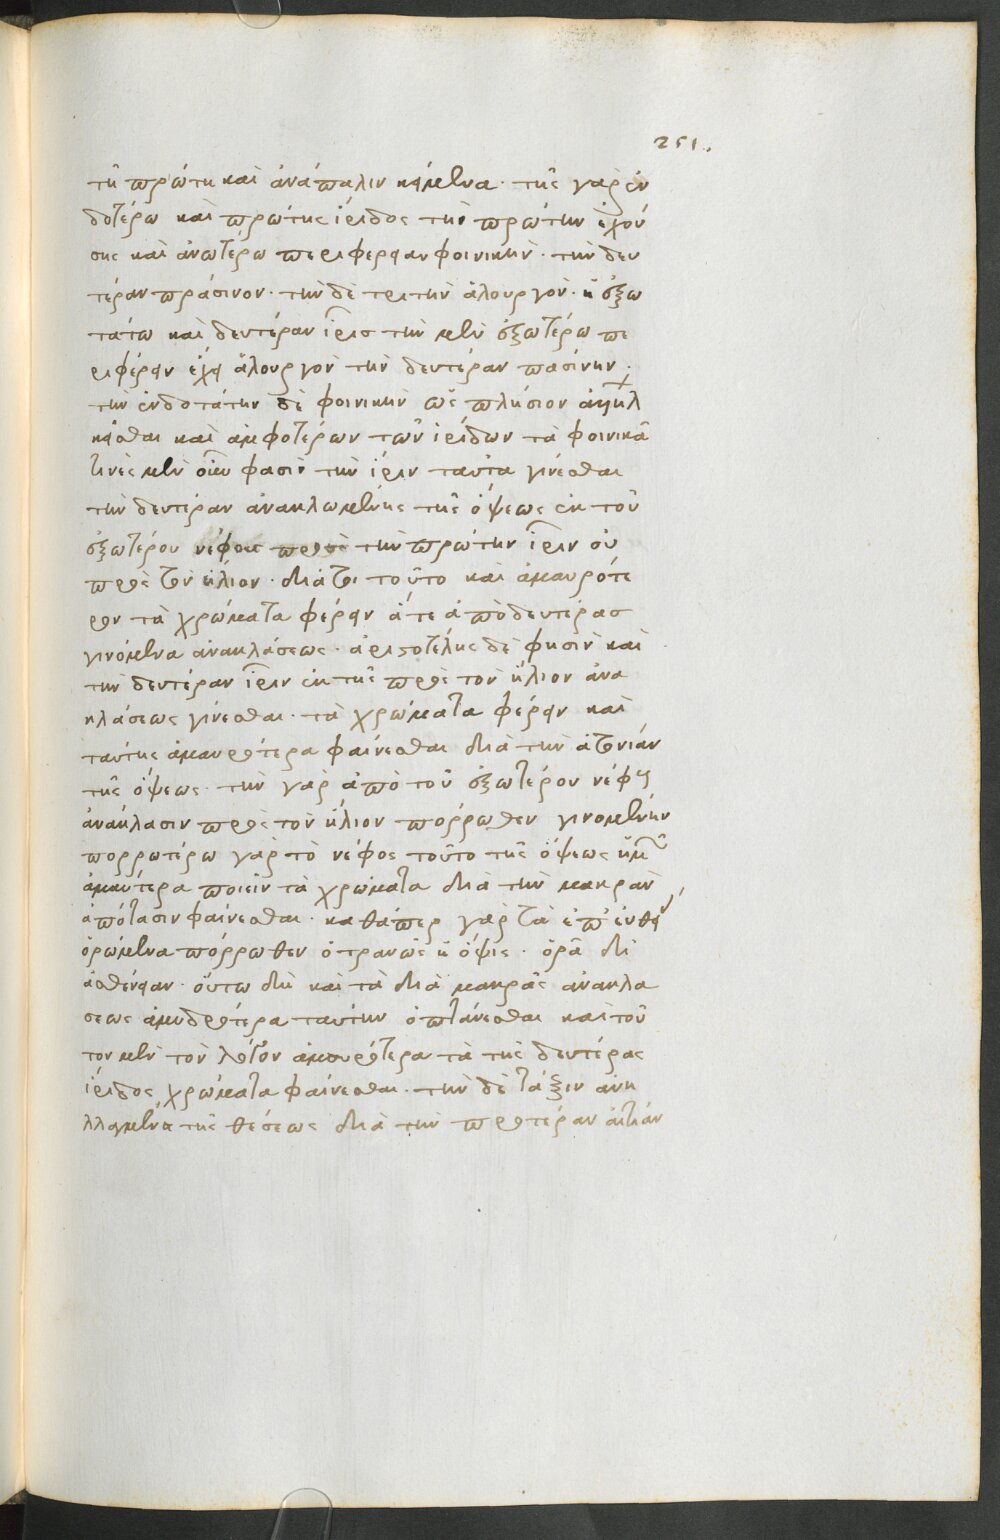 251.
τῆ πρώτη καὶ ἀνάπαλιν κείμενα· τῆς γὰρ ἐν
δοτέρω καὶ πρώτης ἰριδος τὴν πρώτην ἐχού
σης καὶ ἀνωτέρω περιφερειαν φοινικὴν· τὴν δευ
τέραν πράσινον· τὴν δὲ τριτην ἁλουργὸν· ἡ ἐξω
τάτω καὶ δευτέραν ἶρισ τὴν μὲν ἐξωτέρω πε
ριφέρειν ἐχει ἁλουργὸν τὴν δευτέραν πασίνην·
τὴν ἐνδοτάτην δὲ φοινικὴν ὡς πλησιον
κεῖσθαι καὶ ἀμφοτέρων τῶν ἰρίδων τὰ φοινικᾶ
τινὲς μὲν οὖν φασὶν τὴν ἶριν ταῦτα γινέσθαι
τὴν δευτέραν ἀνακλωμένης τῆς ὄψεως ἐκ τοῦ
ἐξωτέρου νέφους πρὸς τὴν πρώτην ἶριν οὐ
πρὸς τὸν ἥλιον· διά τοι τοῦτο καὶ ἀμαυρότε
ρον τὰ χρώματα φέρειν ἅτε ἀπὸ δευτέρασ
γινόμενα ἀνακλάσεως· ἀριστοτέλης δὲ φησιν καὶ
τὴν δευτέραν ἶριν ἐκ τῆς πρὸς τὸν ἥλιον ἀνα
κλάσεως γίνεσθαι· τὰ χρώματα φέρειν καὶ
ταύτης ἀμαυρότερα φαίνεσθαι διὰ τὴν ἀτονιάν
τῆς ὄψεως· τὴν γὰρ ἀπὸ τοῦ ἐξωτέρου νέφους
ἀνάκλασιν πρὸς τὸν ἥλιον πορρωθεν γινομένην
πορρωτέρω γὰρ τὸ νέφος τοῦτο τῆς ὄψεως ἡμῶν
ἀμαύτερα ποιεὶν τὰ χρώματα διὰ τὴν μακρὰν
ἀπότασιν φαίνεσθαι· καθάπερ γὰρ τὰ ἐπ' εὐθεί
ὁρώμενα πόρρωθεν ὀ τρανῶς ἡ ὄψις· ὁρᾶ δι
ἀσθένειαν· οὕτω δὴ καὶ τὰ διὰ μακρᾶς ἀνακλα
σεως ἀμυδρότερα ταύτην ὀπτάνεσθαι καὶ τοῦ
τον μὲν τὸν λόγον ἀμαυρότερα τὰ τῆς δευτέρας
ἰριδος χρώματα φαίνεσθαι· τὴν δὲ τάξιν ἀνη
λλαγμένα τῆς θέσεως διὰ τὴν προτέραν αἰτίαν